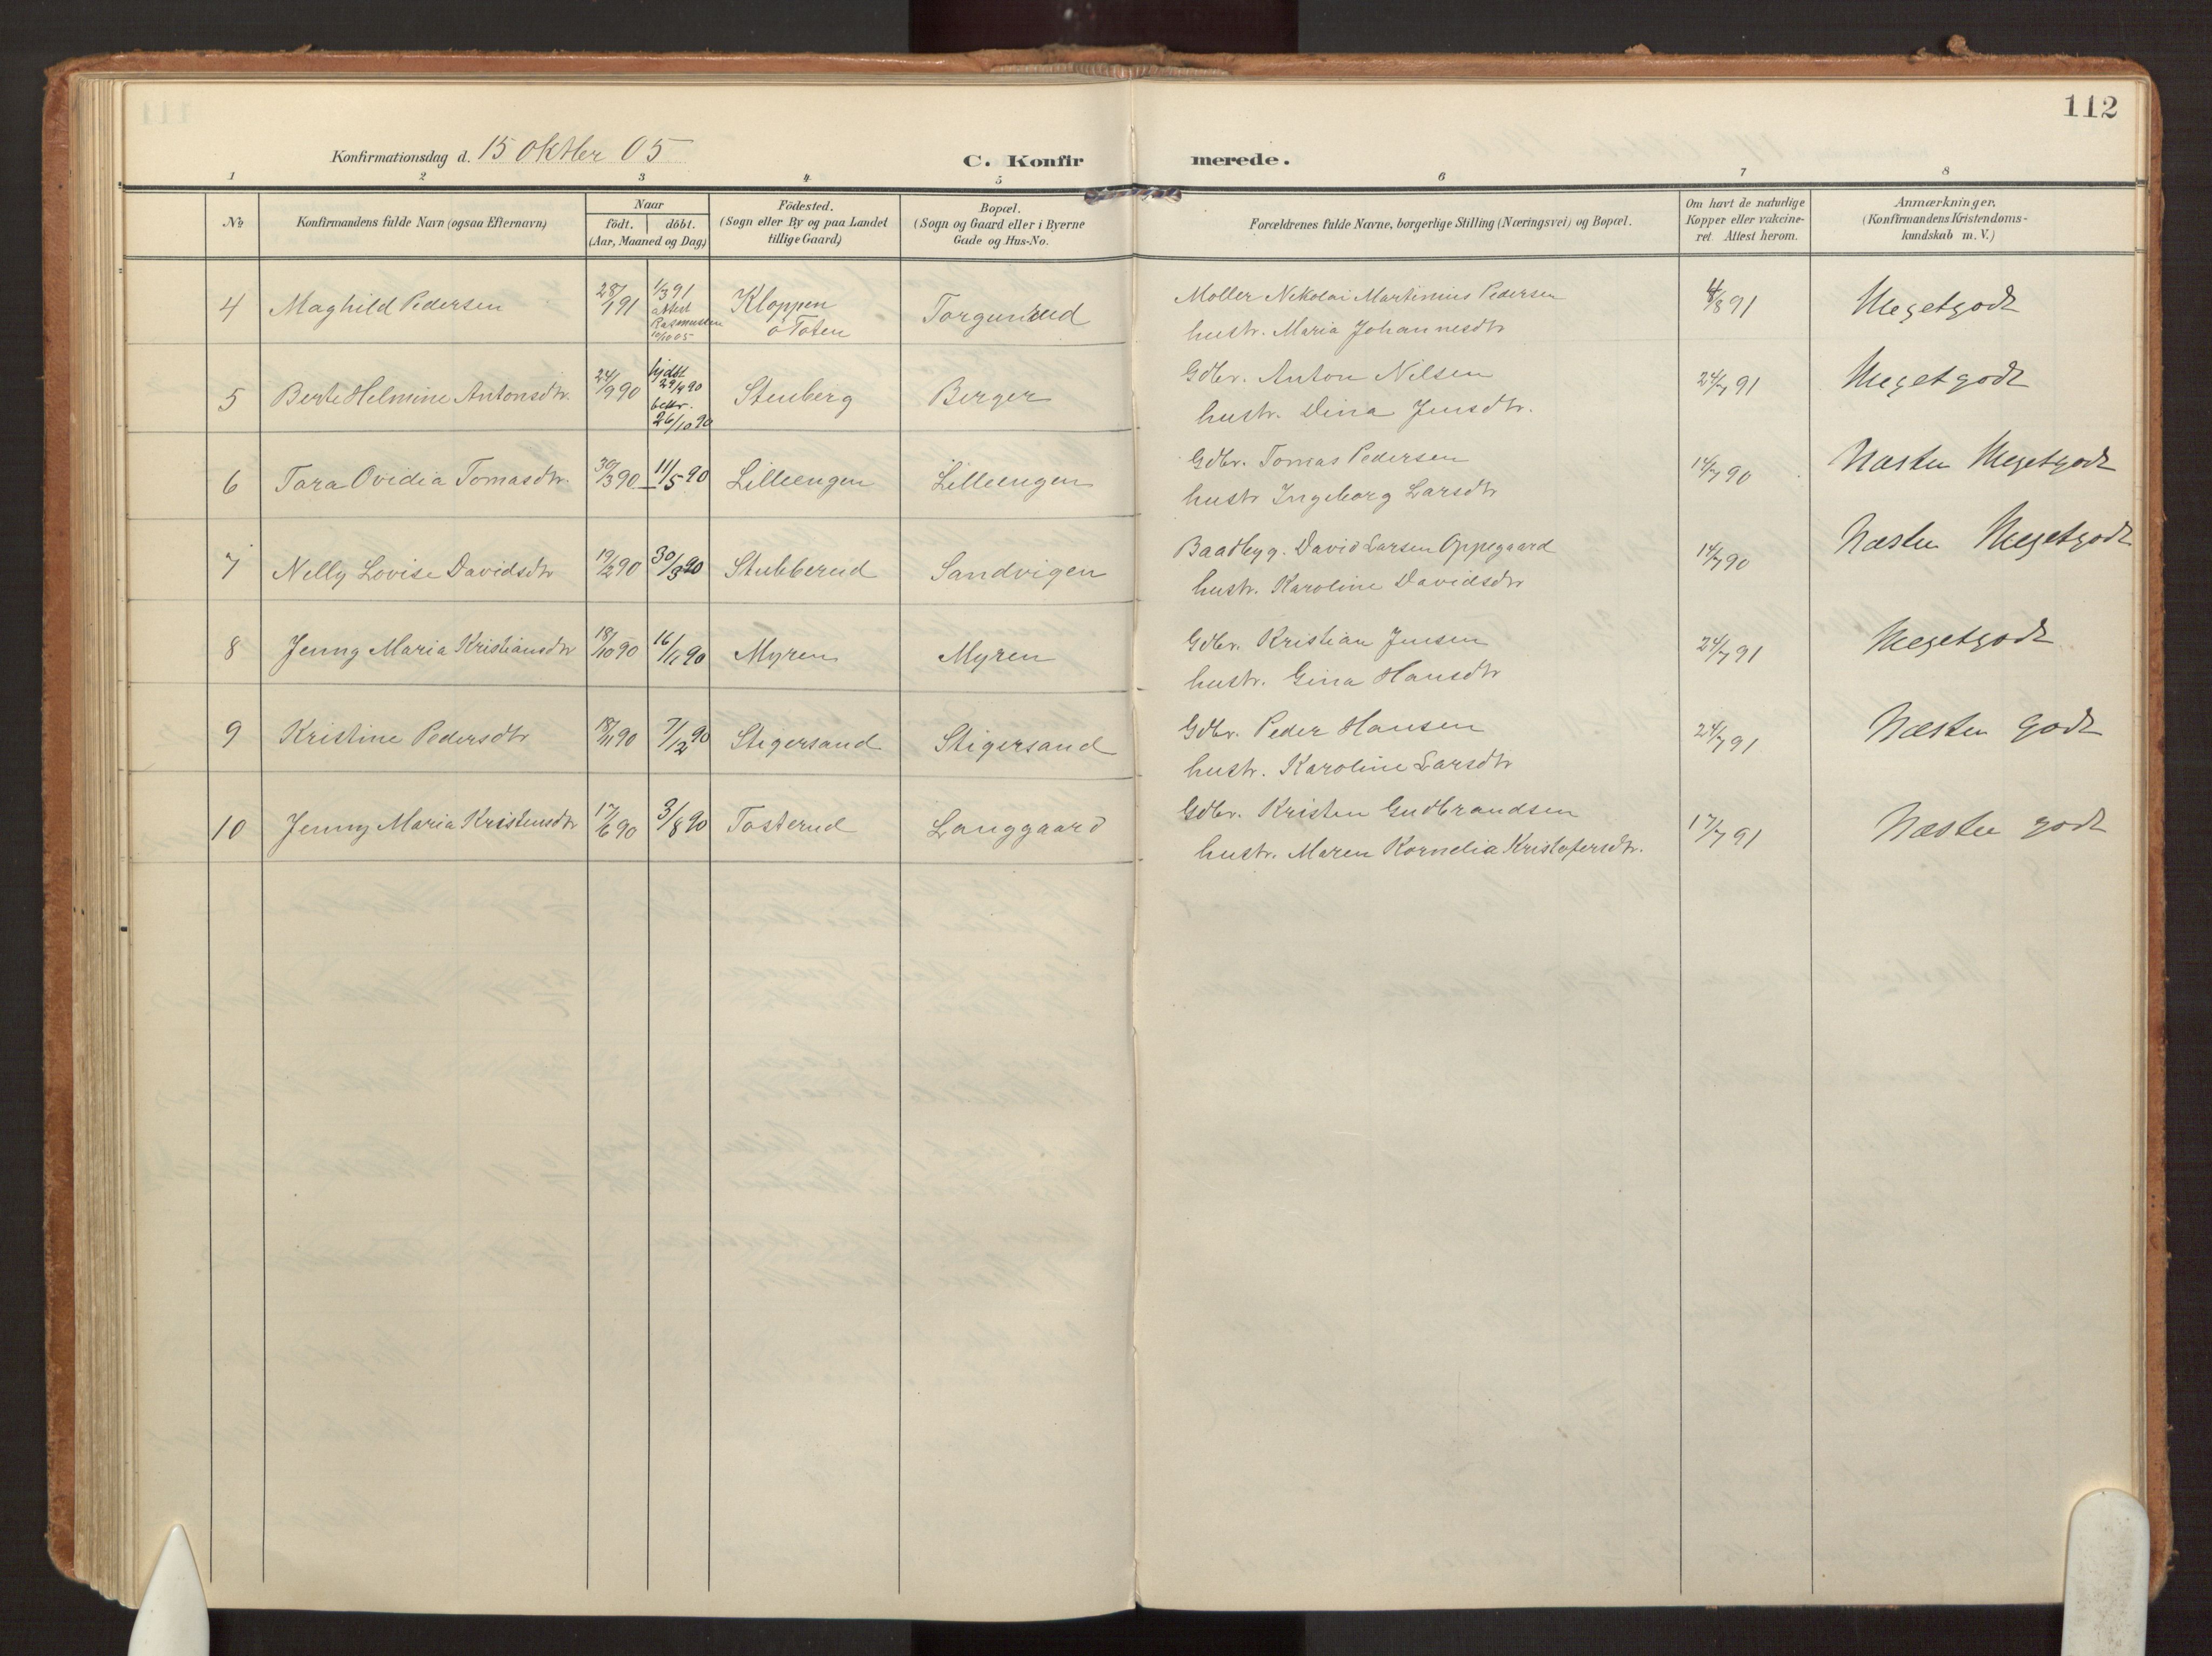 112
Konfirmationsdag d. 15 oktbr 05
C. Konfirmerede.
1 2 3 4 5 6 7 8
No
Konfirmandens fulde Navn (ogsaa Efternavn)
Naar
födt. döbt.
(Aar, Maaned og Dag)
Födested.
(Sogn eller By og paa Landet
tillige Gaard)
Bopæl.
(Sogn og Gaard eller i Byerne
Gade og Hus-No.
Forældrenes fulde Navne, borgerlige Stilling (Næringsvei) og Bopæl.
Om havt de naturlige
Kopper eller vakcine-
ret. Attest herom.
Anmærkninger.
(Konfirmandens Kristendoms-
kundskab m. V.)
4 Maghild Pedersen 28/1 91 1/3 91 attest Rasmussen 10/10 05 Kloppen ö Toten Torgunrud Möller Nikolai Martinius Pedersen 4/8 91 Megetgodt
hustr. Maria Johannesdtr
5 Berte Helmine Antonsdtr. 24/9 90 hjdbt. 29/9 90 bekr. 26/10 90 Stenberg Berger Gdbr. Anton Nilsen 24/7 91 Megetgodt
hustr. Dina Jensdtr.
6 Tora Ovidia Tomasdtr. 30/3 90 11/5 90 Lilleengen Lilleengen Gdbr. Tomas Pedersen 14/7 90 Næsten Megetgodt
hustr Ingeborg Larsdtr
7 Nelly Lovise Davidsdtr 19/2 90 30/3 90 Stubberud Sandvigen Baadbyg. David Larsen Oppegaard 14/7 90 Næsten Megetgodt
hustr. Karoline Davidsdtr
8 Jenny Maria Kristiansdtr 18/10 90 16/11 90 Myren Myren Gdbr. Kristian Jensen 24/7 91 Megetgodt
hustr. Gina Hansdtr
9 Kristine Pedersdtr 18/11 90 7/12 90 Stigersand Stigersand Gdbr. Peder Hansen 24/7 91 Næsten godt
hustr. Karoline Larsdtr
10 Jenny Maria Kristensdtr 17/6 90 3/8 90 Tosterud Langgaard Gdbr. Kristen Gudbrandsen 17/7 91 Næsten godt
hustr. Maren Kornelia Kristofersdtr.